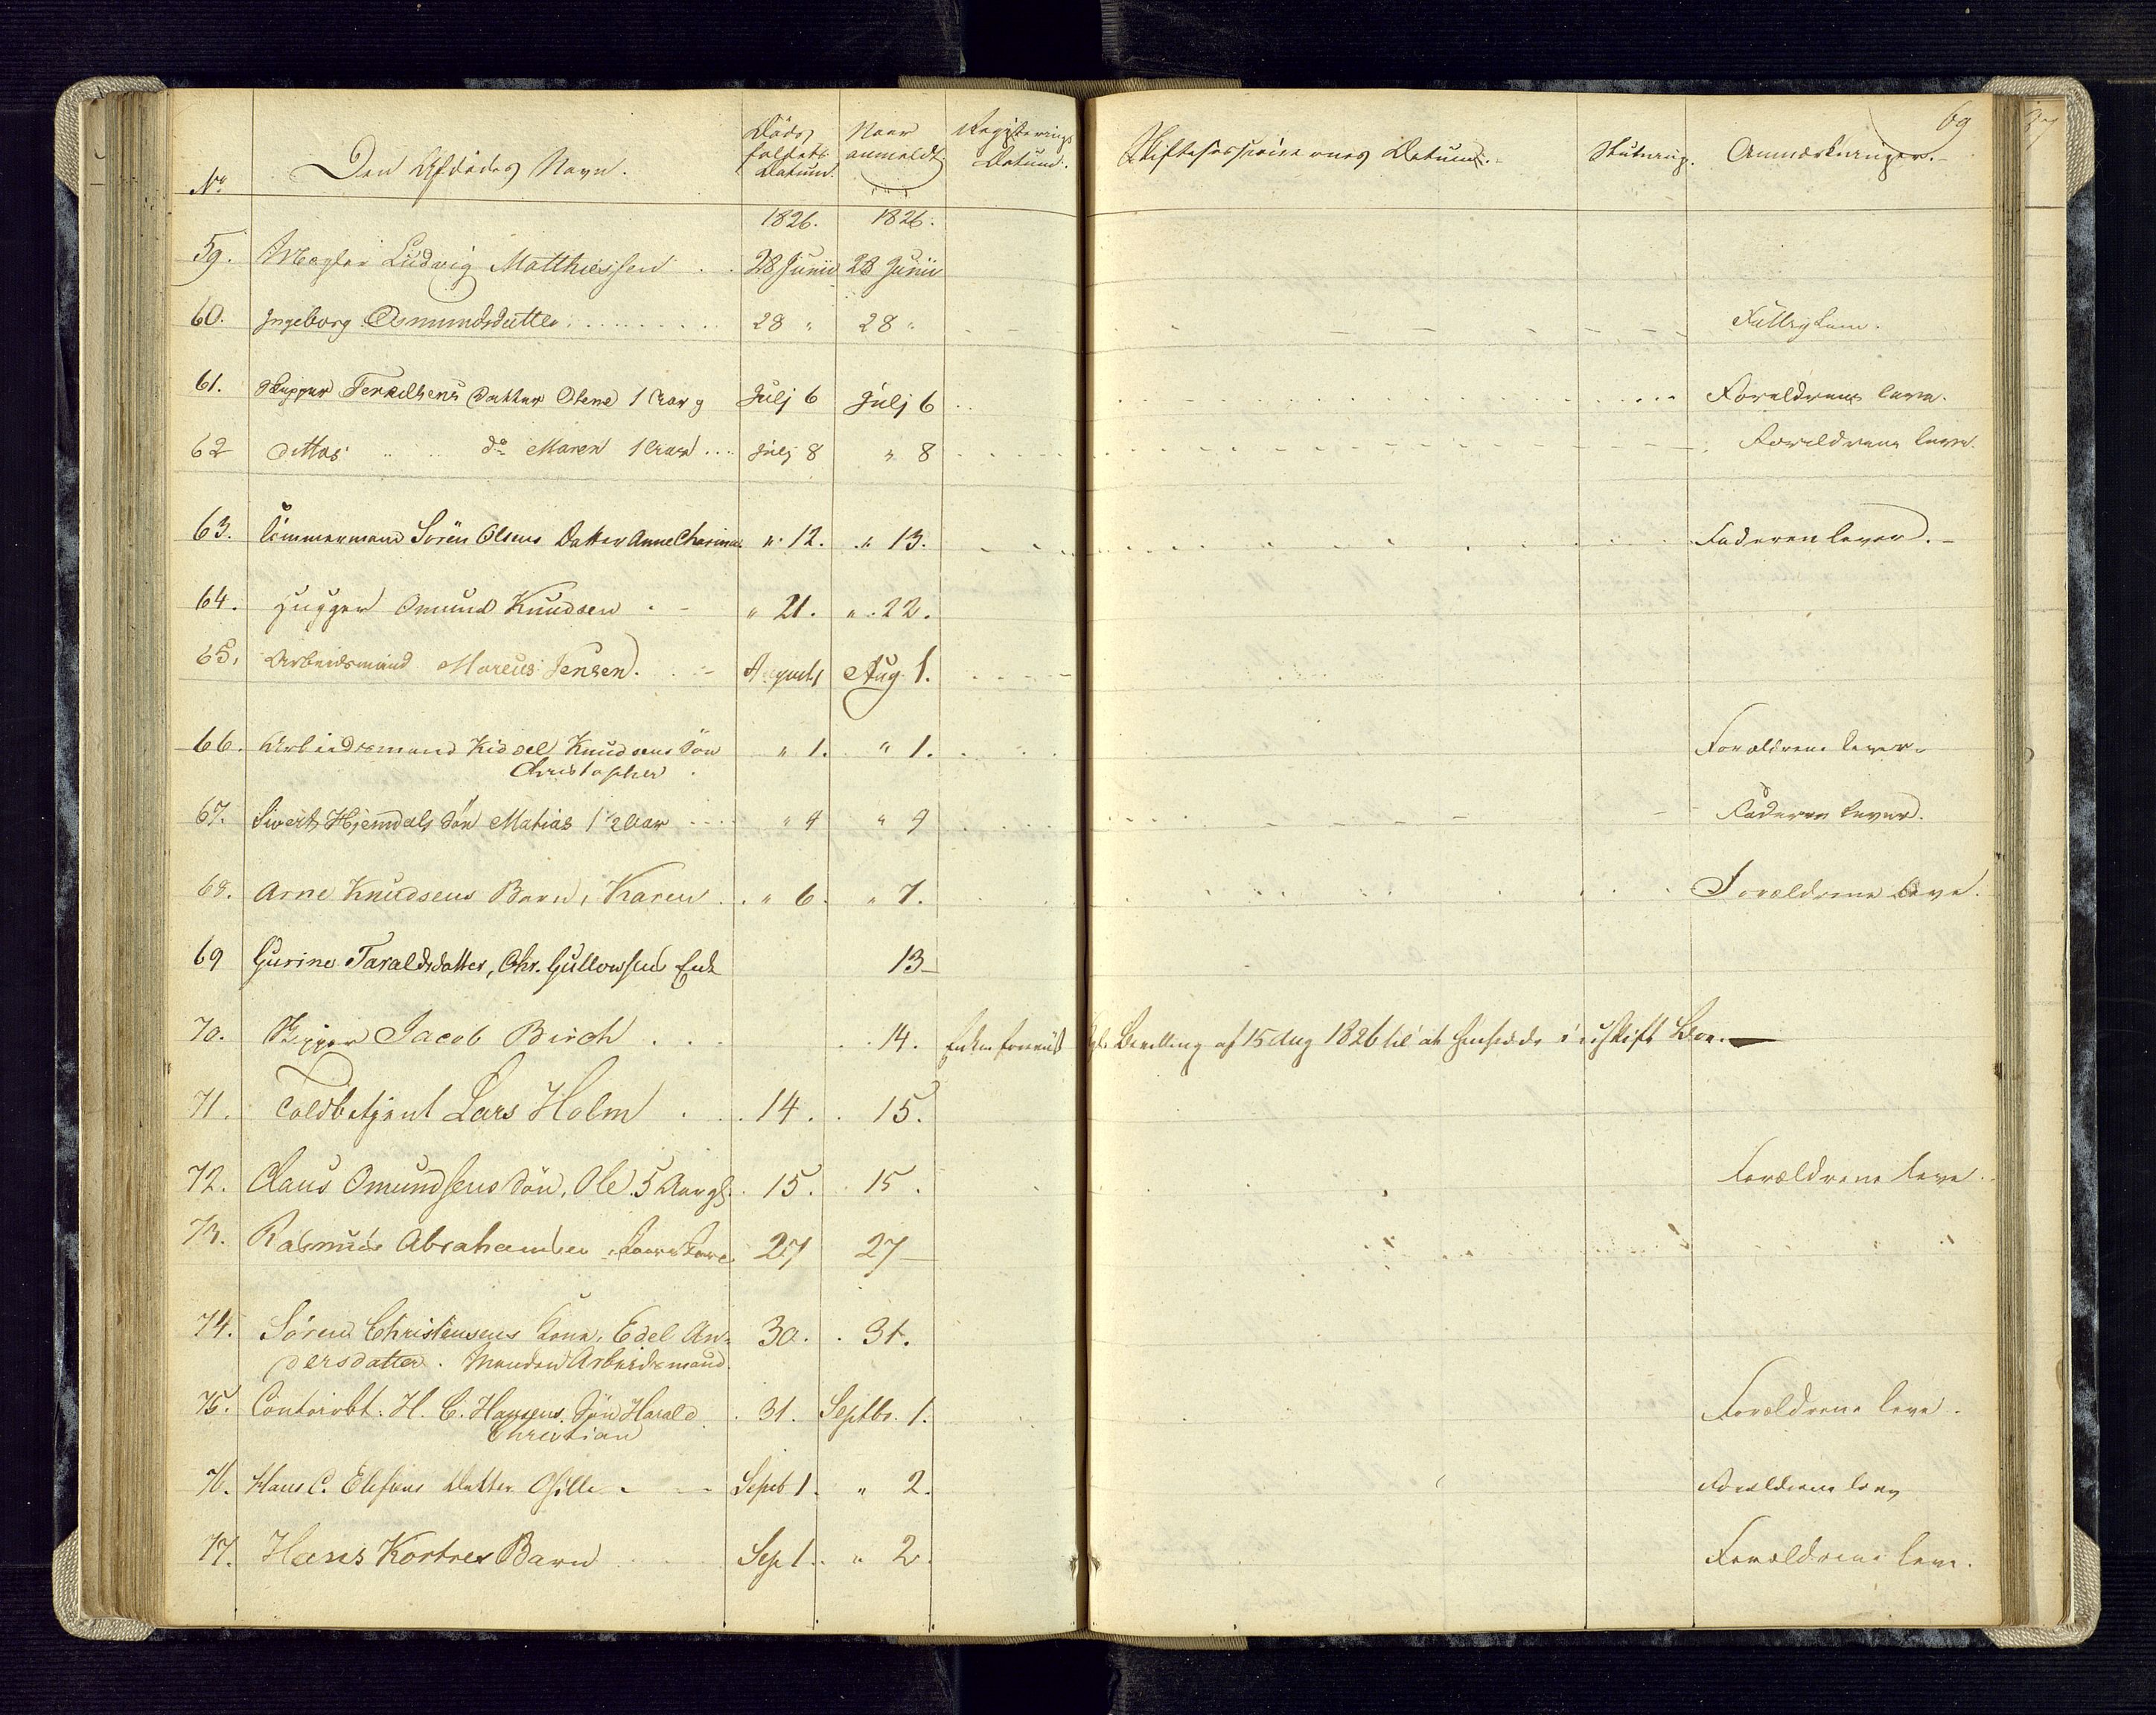 69
No Den Afdødes Navn. Døds, faldets Datum. Naar anmeldt. Registerings Datum. Skiftesessionernes Datum. Slutning. Anmærkninger.
1826. 1826.
59. Mægler Ludvig Matthiessen 28 Junii 28 Junii
60. Ingeborg Asmundsdatter 28 " 28 " Fattiglem.
61. Skipper Terkelsens Datter Olene 1 Aar g Julj 6 Julj 6 Forældrene leve.
62 dittos do Maren 1 Aar Julj 8 " 8 Forældrene leve.
63. Tömmermand Sören Olsens Datter Anne " 12. " 13. Faderen lever.
64. Hugger Omund Knudsen " 21. " 22.
65. Arbeidsmand Marcus Jensen. August 1 Aug 1.
66. Arbeidsmand Kidsel Knudsens Sön " 1. " 1. Forældrene lever.
Christopher
67. Siverts Hjemdals Sön Matias 1 1/2 Aar " 4 " 4 Faderen lever.
68. Arne Knudsens Barn, Karen " 6. " 7. Forældrene leve.
69 Gurine Taraldsdatter, Chr. Gullowsens Enke 13
70. Skipper Jacob Birch 14. Enken foreviist Kgl. Bevilling af 15 Aug 1826 til at hensidde i uskift Boe.
71. Toldbetjent Lars Holm 14. 15.
72. Claus Omundsens Sön, Ole 5 Aar gl. 15. 15. Forældrene leve.
73. Rasmus Abrahamsen 27 27
74. Sören Christensens Kone, Edel An= 30. 31.
dersdatter. Manden Arbeidsmand.
75. Contoirbt. H. C. Hansens Sön Harald 31. Septbr. 1. Forældrene leve.
Christian
76. Hans C. Elefsens Datter Sept 1. " 2. Forældrene leve
77. Hans Kortres Barn Sep 1. " 2. Forældrene leve.